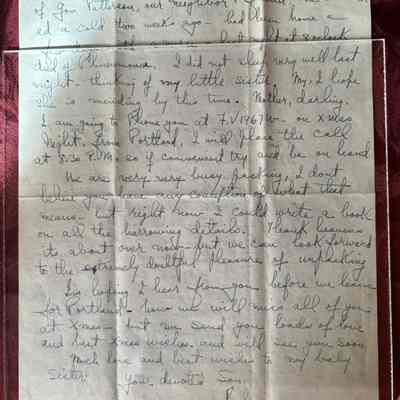 of Gov Patterson, our neighbor
ed a cold two weeks ago - had been home a
day of Pneumonia. I did not sleep very well last
night - thinking of my little sister. My, I hope
she is mending by this time. Mother, darling,
I am going to Phone you at on Xmas
Night, from Portland, I will place the call
at 8:30 P.M. so if convenient try and be on hand
We are very very busy packing, I dont
believe you have any conception of what that
means - but right now I could write a book
on all the harrowing details. Thank heavens
its about over now - but we can look forward
to the extremely doubtful pleasure of unpacking
I'm hoping I hear from you before we leave
for Portland - how we will miss all of you
at Xmas - but we send you loads of love
and best Xmas wishes and will see you soon
Much love and best wishes to my baby
Sister your devoted Son